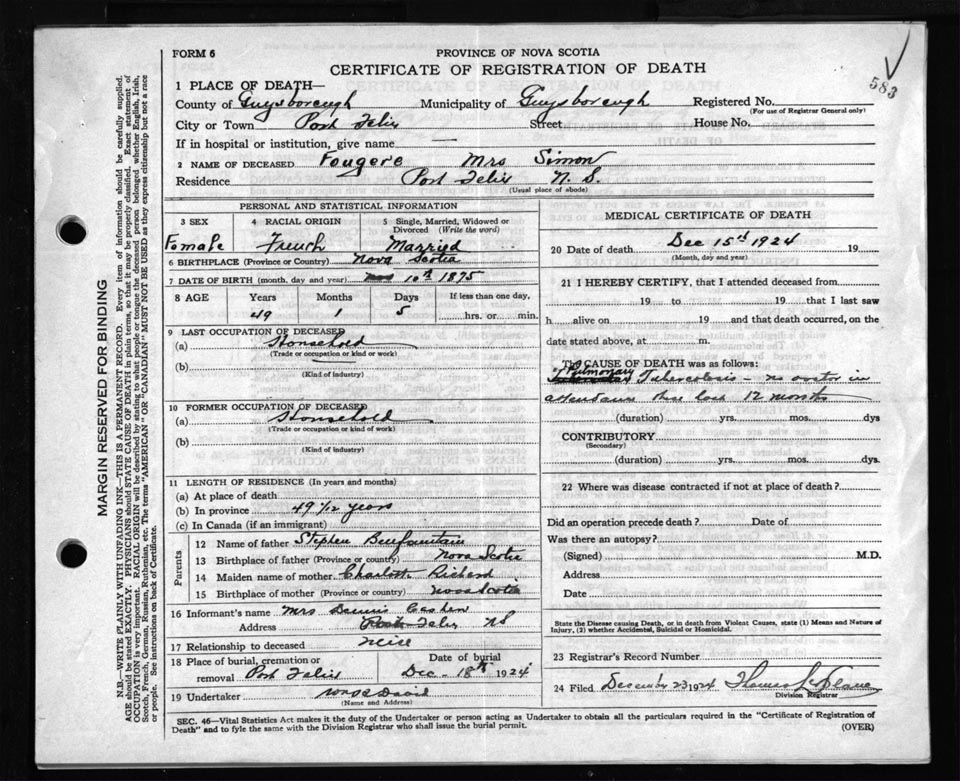 583
FORM 6
PROVINCE OF NOVA SCOTIA
CERTIFICATE OF REGISTRATION OF DEATH
1 PLACE OF DEATH—
County of Guysborough Municipality of Guysborough Registered No.
(For use of Registrar General only)
City or Town Port Felix Street House No.
If in hospital or institution, give name —
2 NAME OF DECEASED Fougere Mrs Simon
Residence Port Felix N. S.
(Usual place of abode)
PERSONAL AND STATISTICAL INFORMATION
3 SEX 4 RACIAL ORIGIN 5 Single, Married, Widowed or Divorced (Write the word)
Female French Married
6 BIRTHPLACE (Province or Country) Nova Scotia
7 DATE OF BIRTH (month, day and year) 10th 1875
8 AGE Years Months Days If less than one day,
49 1 5 hrs. or min.
9 LAST OCCUPATION OF DECEASED
(a) Household
(Trade or occupation or kind or work)
(b)
(Kind of industry)
10 FORMER OCCUPATION OF DECEASED
(a) Household
(Trade or occupation or kind of work)
(b)
(Kind of industry)
11 LENGTH OF RESIDENCE (In years and months)
(a) At place of death
(b) In province 49 1/12 years
(c) In Canada (if an immigrant)
Parents
12 Name of father Stephen
13 Birthplace of father (Province or country) Nova Scotia
14 Maiden name of mother Charlotte Richard
15 Birthplace of mother (Province or country) Nova Scotia
16 Informant's name Mrs Dennis Cashen
Address Port Felix NS
17 Relationship to deceased Neise
18 Place of burial, cremation or removal Port Felix
Date of burial
Dec - 18th 1924
19 Undertaker David
(Name and Address)
MEDICAL CERTIFICATE OF DEATH
20 Date of death Dec 15th 1924 19
(Month, day and year)
21 I HEREBY CERTIFY, that I attended deceased from
19 to 19 that I last saw
h alive on 19 and that death occurred, on
date stated above, at m.
The CAUSE OF DEATH was as follows:
Pulmonary Tuberculosis - no in
attendance these last 12 months
(duration) yrs. mos. dys
CONTRIBUTORY
(Secondary)
(duration) yrs. mos. dys.
22 Where was disease contracted if not at place of death?
Did an operation precede death? Date of
Was there an autopsy?
(Signed) M.D.
Address
Date
State the Disease causing Death, or in death from Violent Causes, state (1) Means and Nature of
Injury, (2) whether Accidental, Suicidal or Homicidal.
23 Registrar's Record Number
24 Filed December 23 1924
Division Registrar
SEC. 46—Vital Statistics Act makes it the duty of the Undertaker or person acting as Undertaker to obtain all the particulars required in the "Certificate of Registration of
Death" and to fyle the same with the Division Registrar who shall issue the burial permit. (OVER)
MARGIN RESERVED FOR BINDING
N.B.—WRITE PLAINLY WITH UNFADING INK—THIS IS A PERMANENT RECORD. Every item of information should be carefully supplied.
AGE should be stated EXACTLY. PHYSICIANS should STATE CAUSE OF DEATH in plain terms, so that it may be properly classified. Exact statement of
OCCUPATION is very important. RACIAL ORIGIN will be described by stating to what people or tongue the deceased person belonged whether English, Irish,
Scotch, French, German, Russian, Ruthenian, etc. The terms "AMERICAN" OR "CANADIAN" MUST NOT BE USED as they express citizenship but not a race
or people. See instructions on back of Certificate.